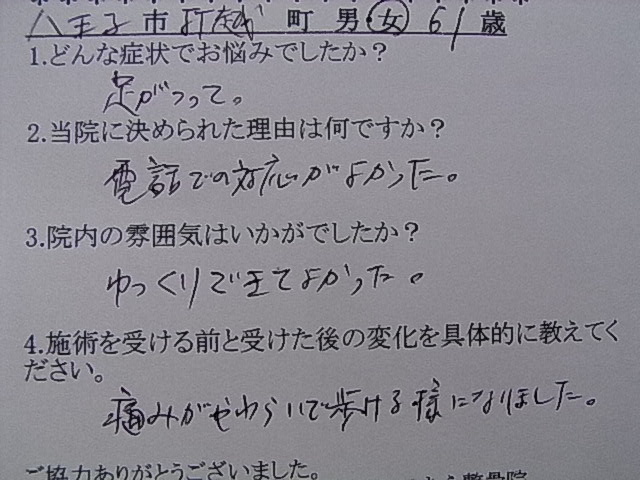 八王子市打越町 男・女 61歳
1.どんな症状でお悩みでしたか？
足がつって。
2.当院に決められた理由は何ですか？
電話での対応がよかった。
3.院内の雰囲気はいかがでしたか？
ゆっくりできてよかった。
4.施術を受ける前と受けた後の変化を具体的に教えてく
ださい。
痛みがやわらいで歩ける様になりました。
ご協力ありがとうございました。
整骨院